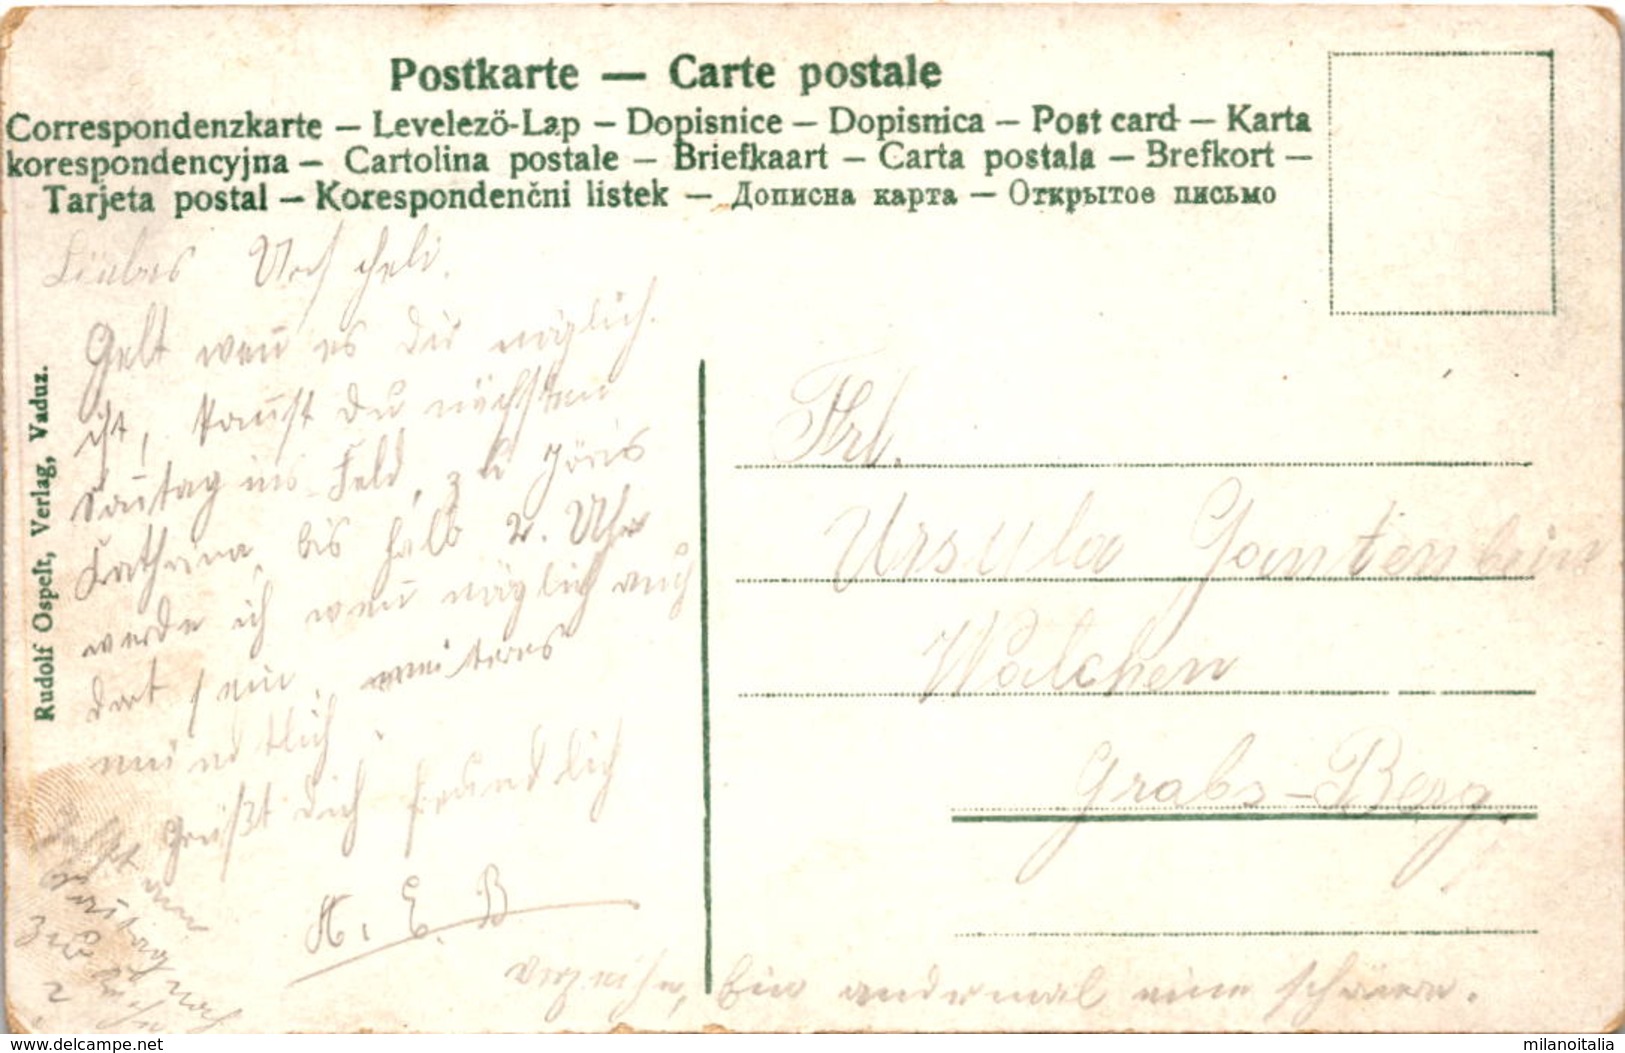 Postkarte — Carte postale
Correspondenzkarte — Levelező-Lap — Dopisnice — Dopisnica — Post card — Karta
korespondencyjna — Cartolina postale — Briefkaart — Carta postala — Brefkort —
Tarjeta postal — Korespondenčni listek — Дописна карта — Открытое письмо
Rudolf Ospelt, Verlag, Vaduz.
Liebes Urscheli.
Gelt wen̄ es dir möglich
ist, kan̄st du nächsten
Son̄tag ins Feld, zu Jöris
Kathrina, bis halb 2. Uhr
werde ich wen̄ möglich auch
dort sein. weiteres
mündtlich.
Grüßt dich freundlich
A. E. B
Son̄tag
verzeihe, Ein andermal eine schönere.
Frl.
Ursula Gantenbein
Walchen
Grabs-Berg.
delcampe.net
milanoitalia